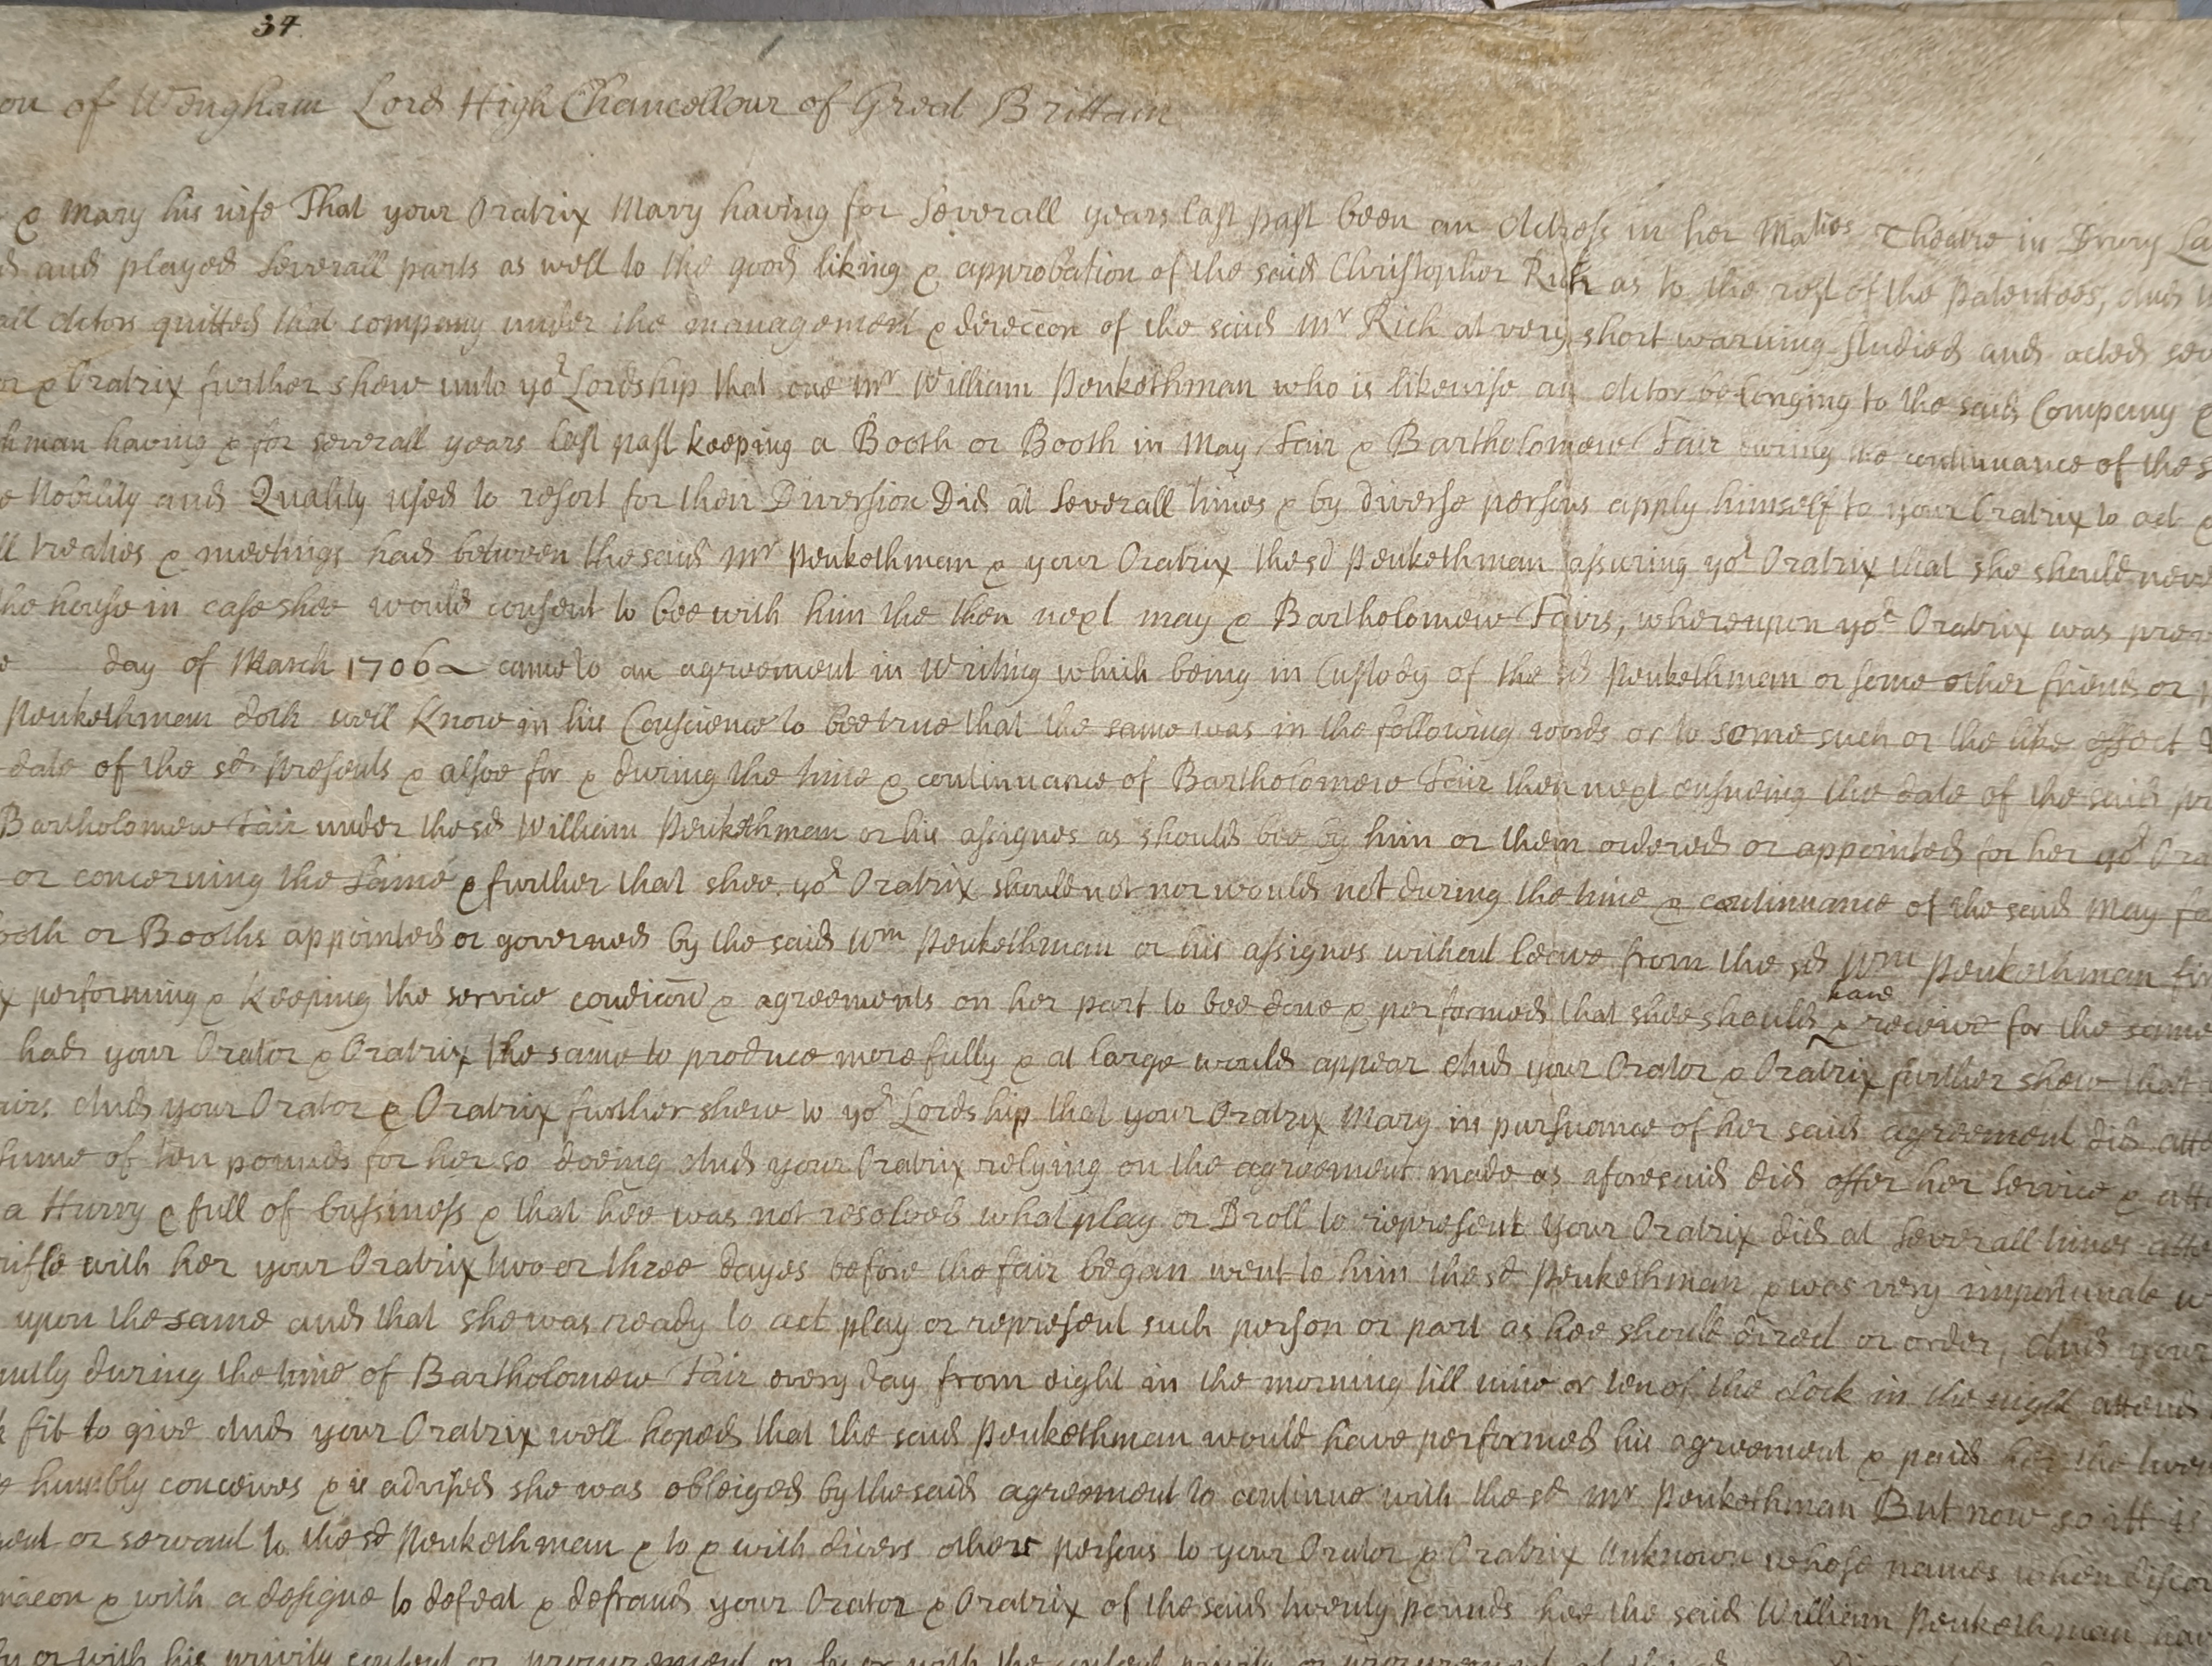 34
on of Wengham Lord High Chancellour of Great Brittain
& Mary his wife That your Oratrix Mary having for severall years last past been an Actress in her Maties Theatre in Drury La
and played severall parts as well to the good liking & approbation of the said Christopher Rich as to the rest of the Patentees, And
Actors quitted that company under the management & direccon of the said Mr Rich at very short warning studied and acted sev
or & Oratrix further shew unto yor Lordship that one Mr William Penkethman who is likewise an Actor belonging to the said Company &
hman having & for severall years last past keeping a Booth or Booth in May Fair & Bartholomew Fair during the continuance of the s
e Nobility and Quality used to resort for their Diversion Did at severall times & by diverse persons apply himself to your Oratrix to act &
ll treaties & meetings had between the said Mr Penkethman & your Oratrix the sd Penkethman assuring yor Oratrix that she should nev
the house in case shee would consent to bee with him the then next may & Bartholomew Fairs, whereupon yor Oratrix was pre
e day of March 1706 came to an agreement in Writing which being in Custody of the sd Penkethman or some other friend or
Penkethman doth well Know in his Conscience to bee true that the same was in the following words or to some such or the like effect
date of the sd presents & alsoe for & during the time & continuance of Bartholomew Fair then next ensueing the date of the said pr
Bartholomew Fair under the sd William Penkethman or his assignes as should bee by him or them ordered or appointed for her yor Ora
or concerning the same & further that shee yor Oratrix should not nor would not during the time & continuance of the said May fa
ooth or Booths appointed or governed by the said Wm Penkethman or his assignes without leave from the sd Wm Penkethman fir
x performing & Keeping the service condicon & agreements on her part to bee done & performed that shee should have & receive for the same
had your Orator & Oratrix the same to produce more fully & at large would appear And your Orator & Oratrix further shew that
airs And your Orator & Oratrix further shew to yor Lordship that your Oratrix Mary in pursuance of her said agreement did att
sume of ten pounds for her so doeing And your Oratrix relying on the agreement made as aforesaid did offer her service & att
a Hurry & full of bussiness & that hee was not resolved what play or Droll to represent your Oratrix did at severall times atte
rifle with her your Oratrix two or three dayes before the fair began went to him the sd Penkethman & was very importunate w
upon the same and that she was ready to act play or represent such person or part as hee should direct or order, And your
ntly during the time of Bartholomew Fair every day from eight in the morning till nine or ten of the clock in the night attend
k fit to give And your Oratrix well hoped that the said Penkethman would have performed his agreement & paid her the twen
e humbly conceives & is advised she was obleiged by the said agreement to continue with the sd Mr Penkethman But now so itt is
ent or servant to the sd Penkethman & to & with divers other persons to your Orator & Oratrix Unknown whose names when discov
nacon & with a designe to defeat & defraud your Orator & Oratrix of the said twenty pounds hee the said William Penkethman hav
by or with his privity consent or procurement or by or with the consent privity or procurement